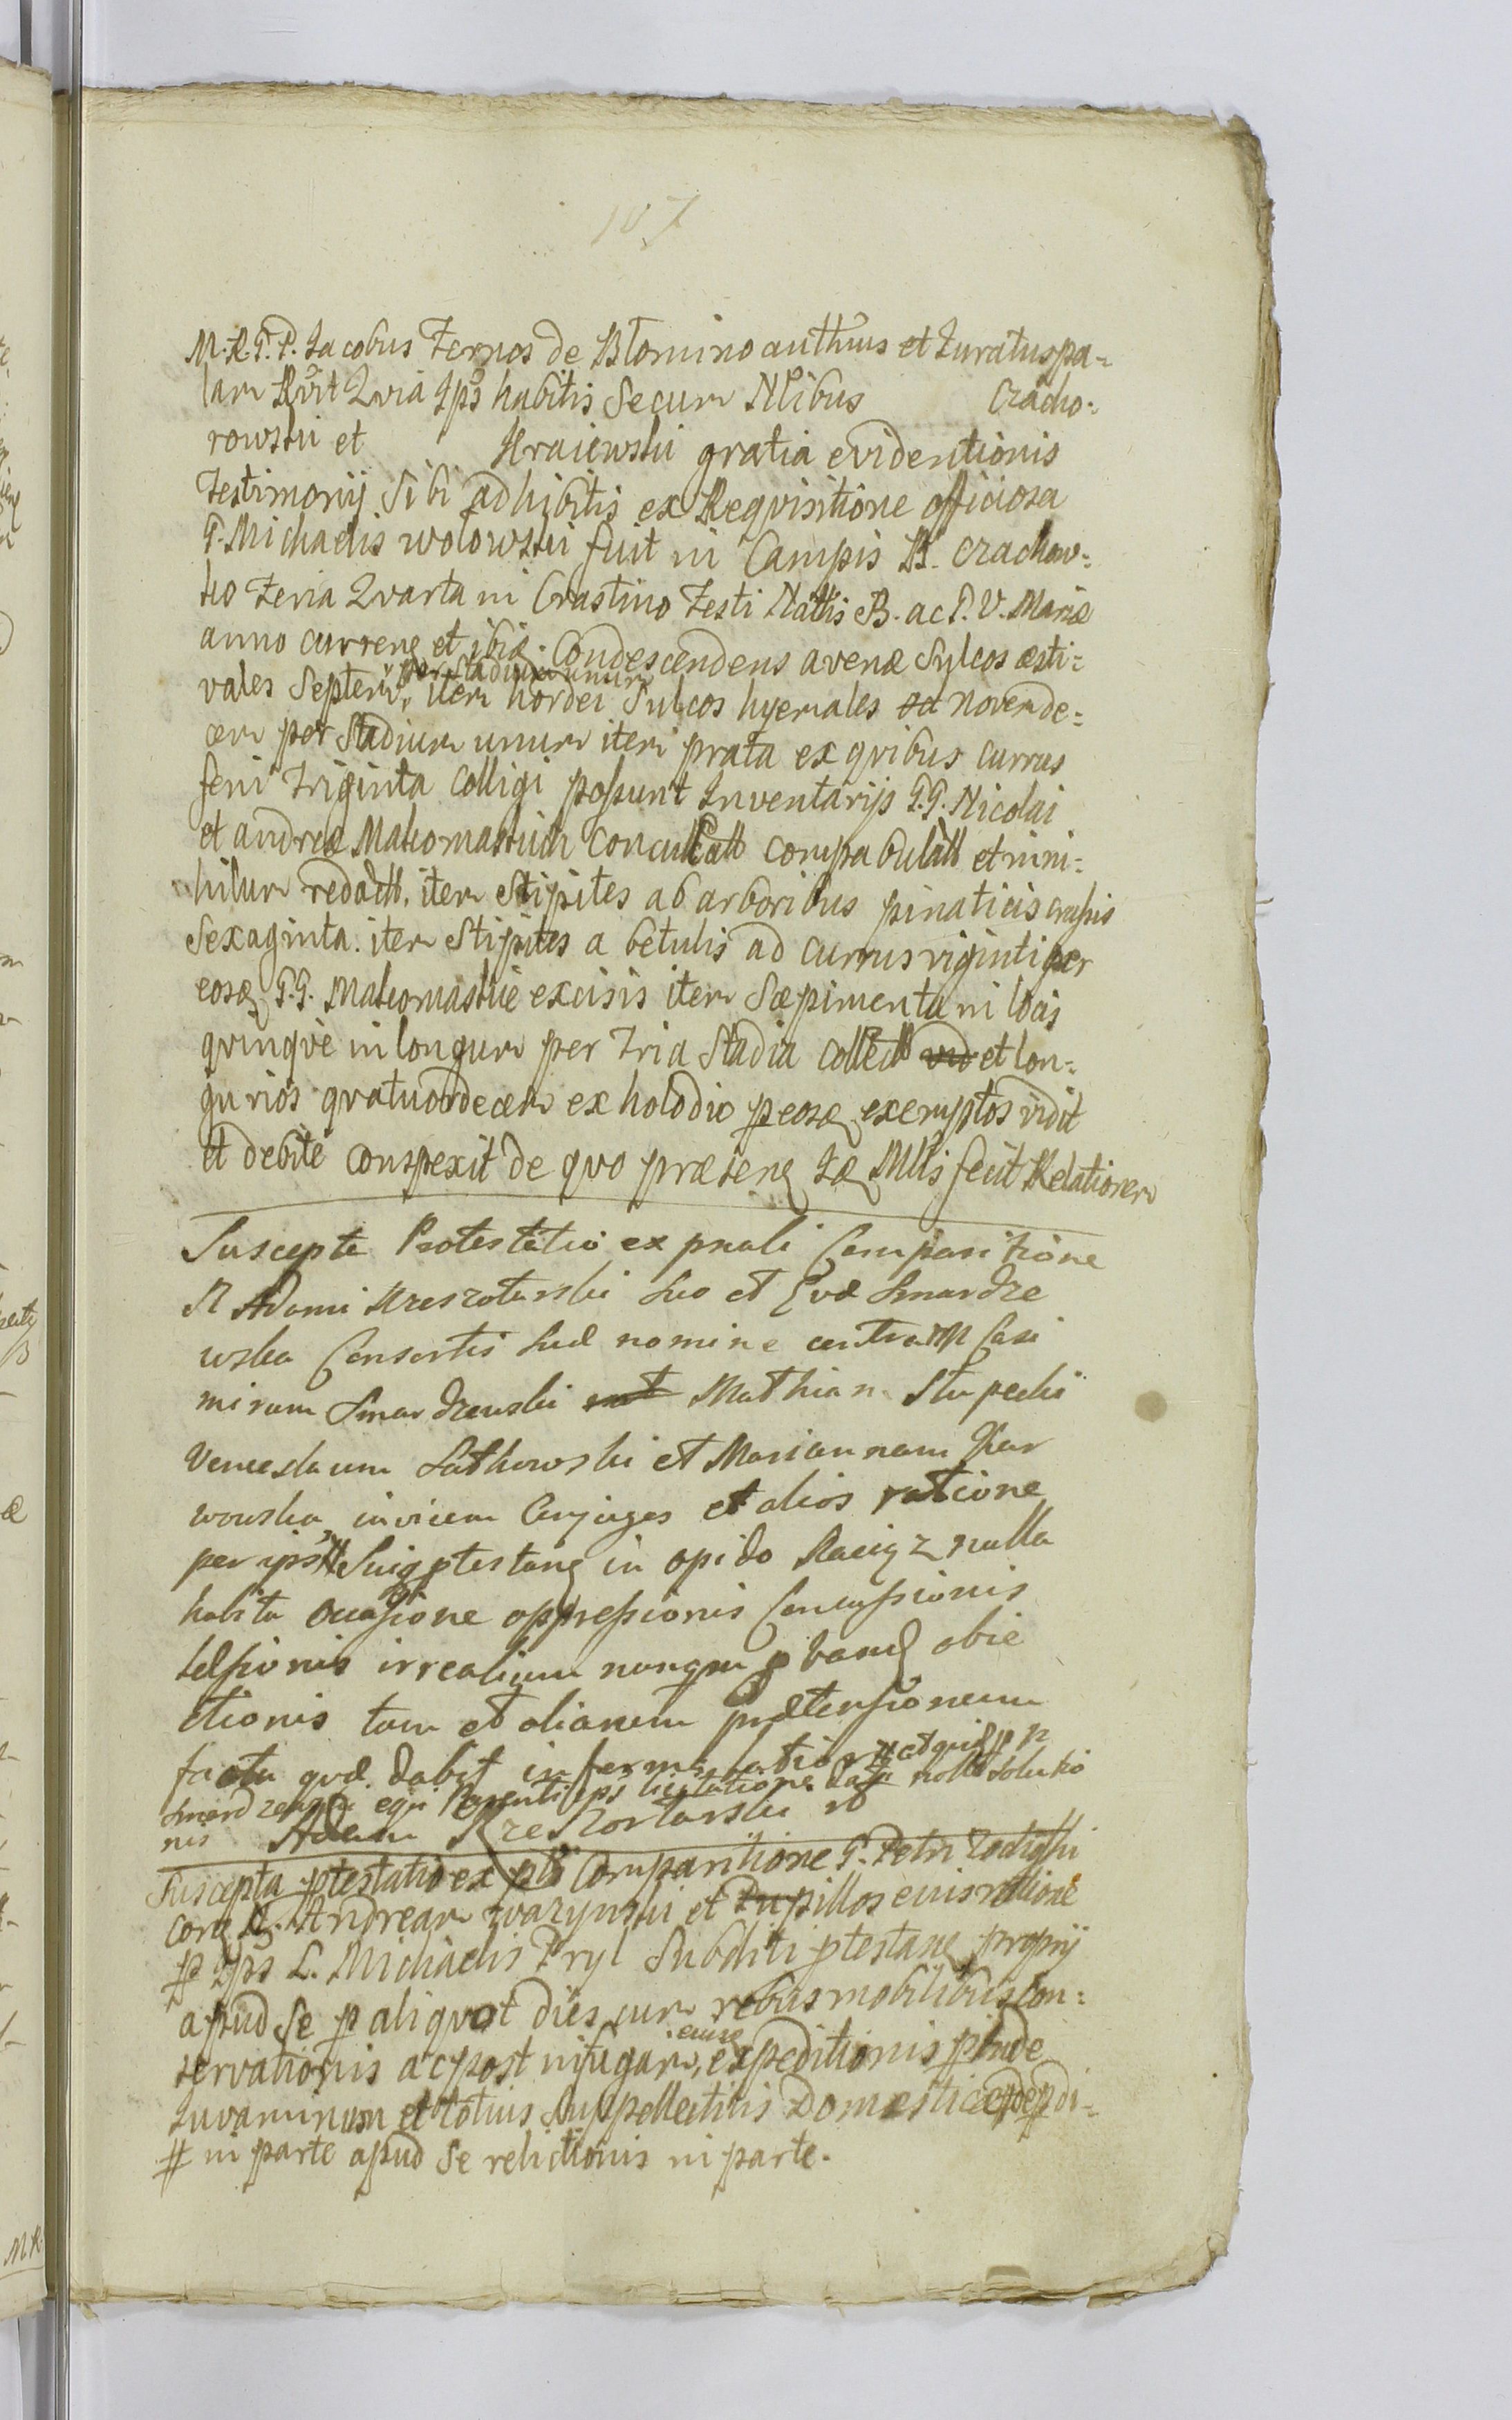 107
M. R. G. P. Jacobus Fernos de Blomino autthus et Juratus pa-
lam Rvit Qvia Ips habitis Secum Nlibus Czacho-
rowski et Kraiewski gratia evidentionis
Testimonij Sibi adhibitis ex Reqvisitione officiosa
G. Michaelis wołowski fuit in Campis B. Czachow-
ko Feria Qvarta in Crastino Festi Nattis B. ac P. V. Mariæ
anno curren et ibiq. Condescendens avenæ Sylcos æsti-
per Stadium unum
vales Septem, item hordei Sulcos hyemales novende-
cem per Stadium unum item prata ex qvibus currus
feni Triginta colligi possunt Inventarijs G. G. Nicolai
et andreæ Makomaskich conculcatt compabulatt et inni-
hilum redactt. item Stipites ab arboribus pinaticis crassis
Sexaginta. item Stipites a betulis ad currus viginti per
eosq G. G. Makomaskie excisis item Sæpimenta in locis
qvinqve in longum per Tria Stadia collectt et lon-
gurios qvatuordecem ex holodio p eosq exemptos vidit
et debite conspexit de qvo præsens Iæ Mtis fecit Relationem
Suscepta Protestatio ex pnali Comparitione
N Adami Kreszotarski Suo et Evæ Smardze
wska Consortis Suæ nomine contra N Casi
mirum Smardzewski Mathian Stupecki
Venceslaum Sutkowski et Mariannam Kar
wowska invicem Conjuges et alios ratione
per ips Suig ptestang in opido Raciąz nulla
habita occasione oppressionis Concussionis
telsionis irrealium nunqm p bang obie
ctionis tam et aliarum prætensionum
facta qvæ dabit in forma
Smardzewski eqvi licitatione Solutio
nis Adam Kreszotarski
Suscepta ptestatio ex pti Comparitione G. Petri Zodigski
cong G. Andream zwazynski et Pupillos euis ratione
p Ips L. Michaelis Pryl Subditi ptestang proprij
apud Se p aliqvot dies cum rebus mobilibus con-
eiusq
servationis ac post in fugam, expeditionis pinde
Iuvaminum et totius Suppellectilis Domestice
# in parte apud Se relictionis in parte.